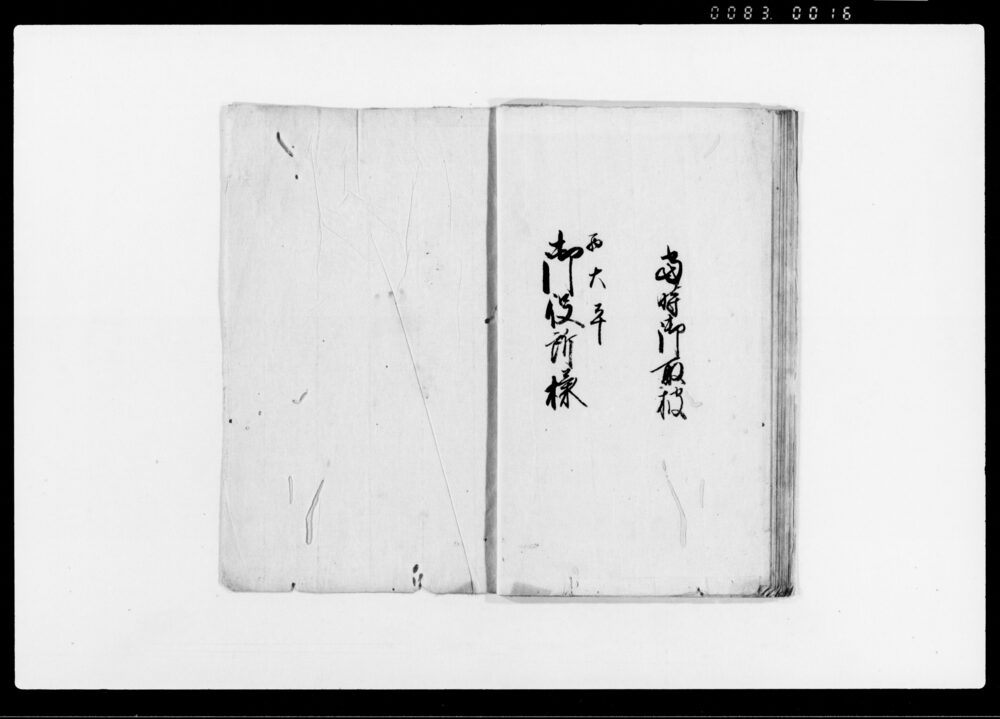 0083. 0016
當時御取扱
西大平
御役所様